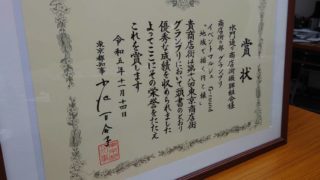 賞状
水門通り商店街振興組合様
商店街の部 グランプリ
貴商店街は第十八回東京商店街
グランプリにおいて頭書のとおり
優秀な成績を収められました
よってここにその栄誉をたたえ
これを賞します
令和五年十一月十四日
東京都知事 小池百合子